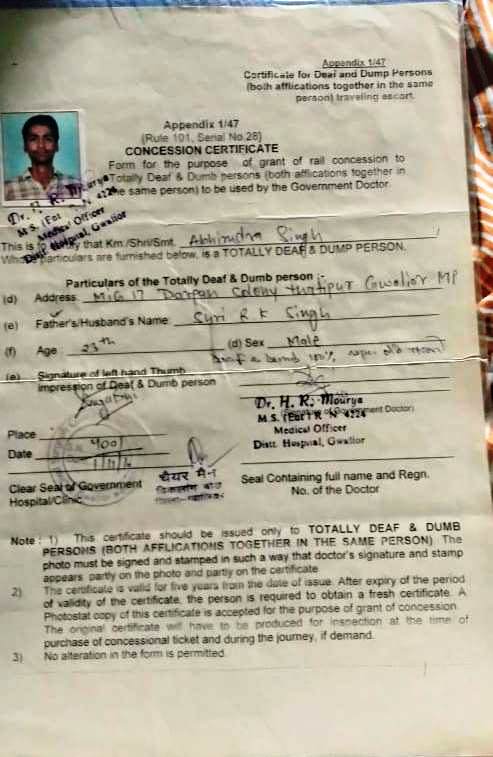 Appendix 1/47
Certificate for Deaf and Dump Persons
(both afflications together in the same
person) traveling escort.
Appendix 1/47
(Rule 101, Serial No.28)
CONCESSION CERTIFICATE
Form for the purpose of grant of rail concession to
Totally Deaf & Dumb persons (both afflications together in
the same person) to be used by the Government Doctor.
Dr. H. R. Mourya
M S. (Ent) R. N 4224
Medical Officer
Distt. Hospital, Gwalior
This is to certify that Km./Shri/Smt. Abhirudra Singh
Whose particulars are furnished below, is a TOTALLY DEAF & DUMP PERSON.
Particulars of the Totally Deaf & Dumb person :-
(d) Address MIG 17 Darpan Colony thatipur Gwalior MP
(e) Father's/Husband's Name Shri R K Singh
(f) Age 23th (d) Sex Male
Deaf & dumb 100%
(e) Signature of left hand Thumb
impression of Deaf & Dumb person
Dr. H. R. Mourya
(Signature of Government Doctor)
M.S. (Ent) R. N 4224
Medical Officer
Distt. Hospital, Gwalior
Place
Date
चैयर मैन
विकलांग बोर्ड
Clear Seal of Government
Hospital/Clinic
Seal Containing full name and Regn.
No. of the Doctor
Note : 1) This certificate should be issued only to TOTALLY DEAF & DUMB
PERSONS (BOTH AFFLICATIONS TOGETHER IN THE SAME PERSON) The
photo must be signed and stamped in such a way that doctor's signature and stamp
appears partly on the photo and partly on the certificate
2) The certificate is valid for five years from the date of issue. After expiry of the period
of validity of the certificate, the person is required to obtain a fresh certificate. A
Photostat copy of this certificate is accepted for the purpose of grant of concession.
The original certificate will have to be produced for inspection at the time of
purchase of concessional ticket and during the journey, if demand.
3) No alteration in the form is permitted.